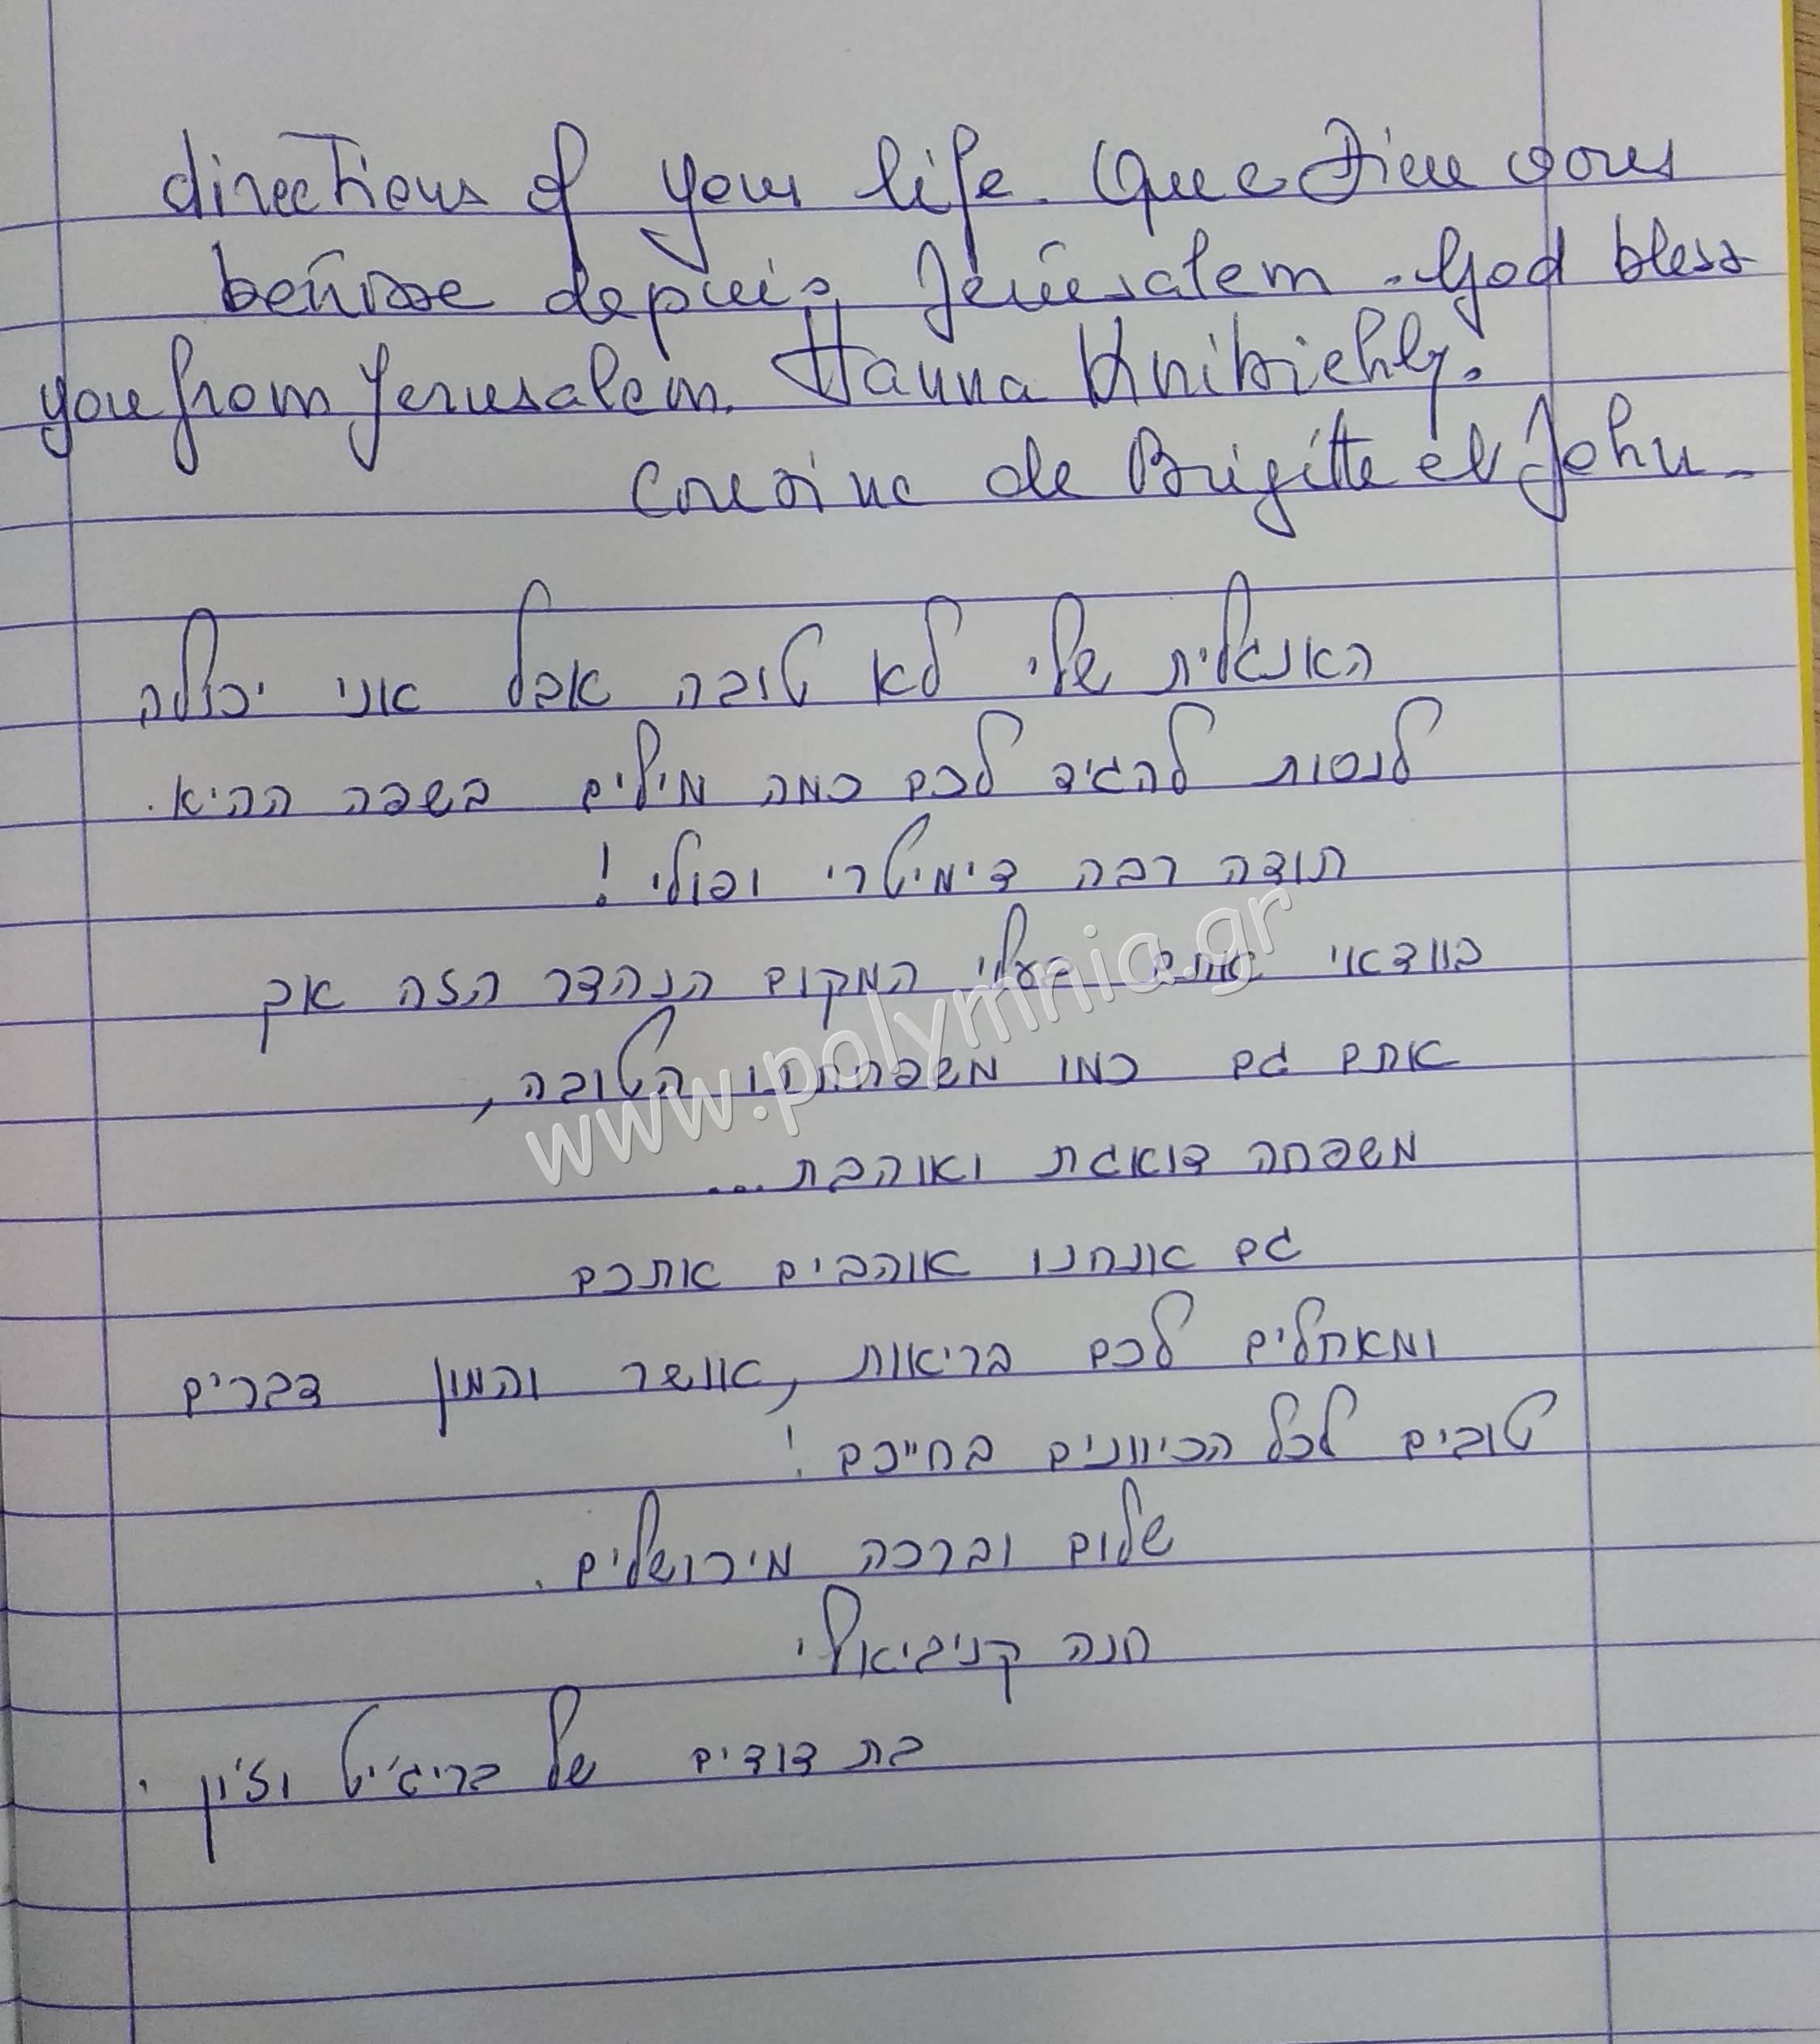 directions of your life. Que Dieu vous
bénisse depuis Jérusalem. God bless
you from Jerusalem. Hanna Knibiehly.
Cousine de Brigitte et John.
האנגלית שלי לא טובה אבל אני יכולה
לנסות להגיד לכם כמה מילים בשפה ההיא.
תודה רבה דימיטרי ופולי!
בוודאי אתם בעלי המקום הנהדר הזה אך
אתם גם כמו משפחתנו הטובה,
משפחה דואגת ואוהבת...
גם אנחנו אוהבים אתכם
ומאחלים לכם בריאות, אושר והמון דברים
טובים לכל הכיוונים בחייכם!
שלום וברכה מירושלים.
חנה קניביאלי
בת דודים של בריג'יט וג'ון.
www.polymnia.gr